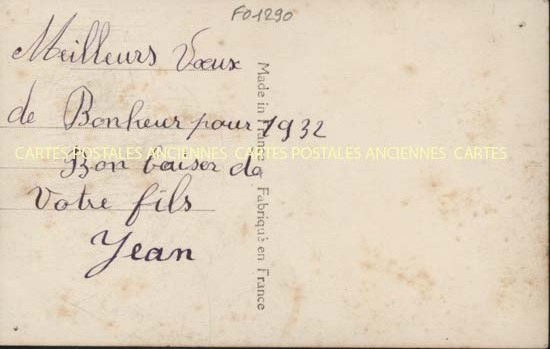 F01290
Meilleurs Vœux
de Bonheur pour 1932
Bon baiser de
Votre fils
Jean
Made in France Fabriqué en France
CARTES POSTALES ANCIENNES CARTES POSTALES ANCIENNES CARTES